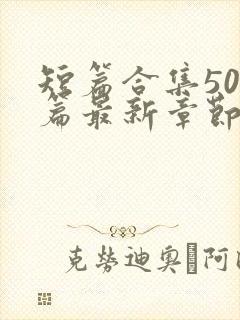 短篇合集50
篇最新章节
克劳迪奥·阿